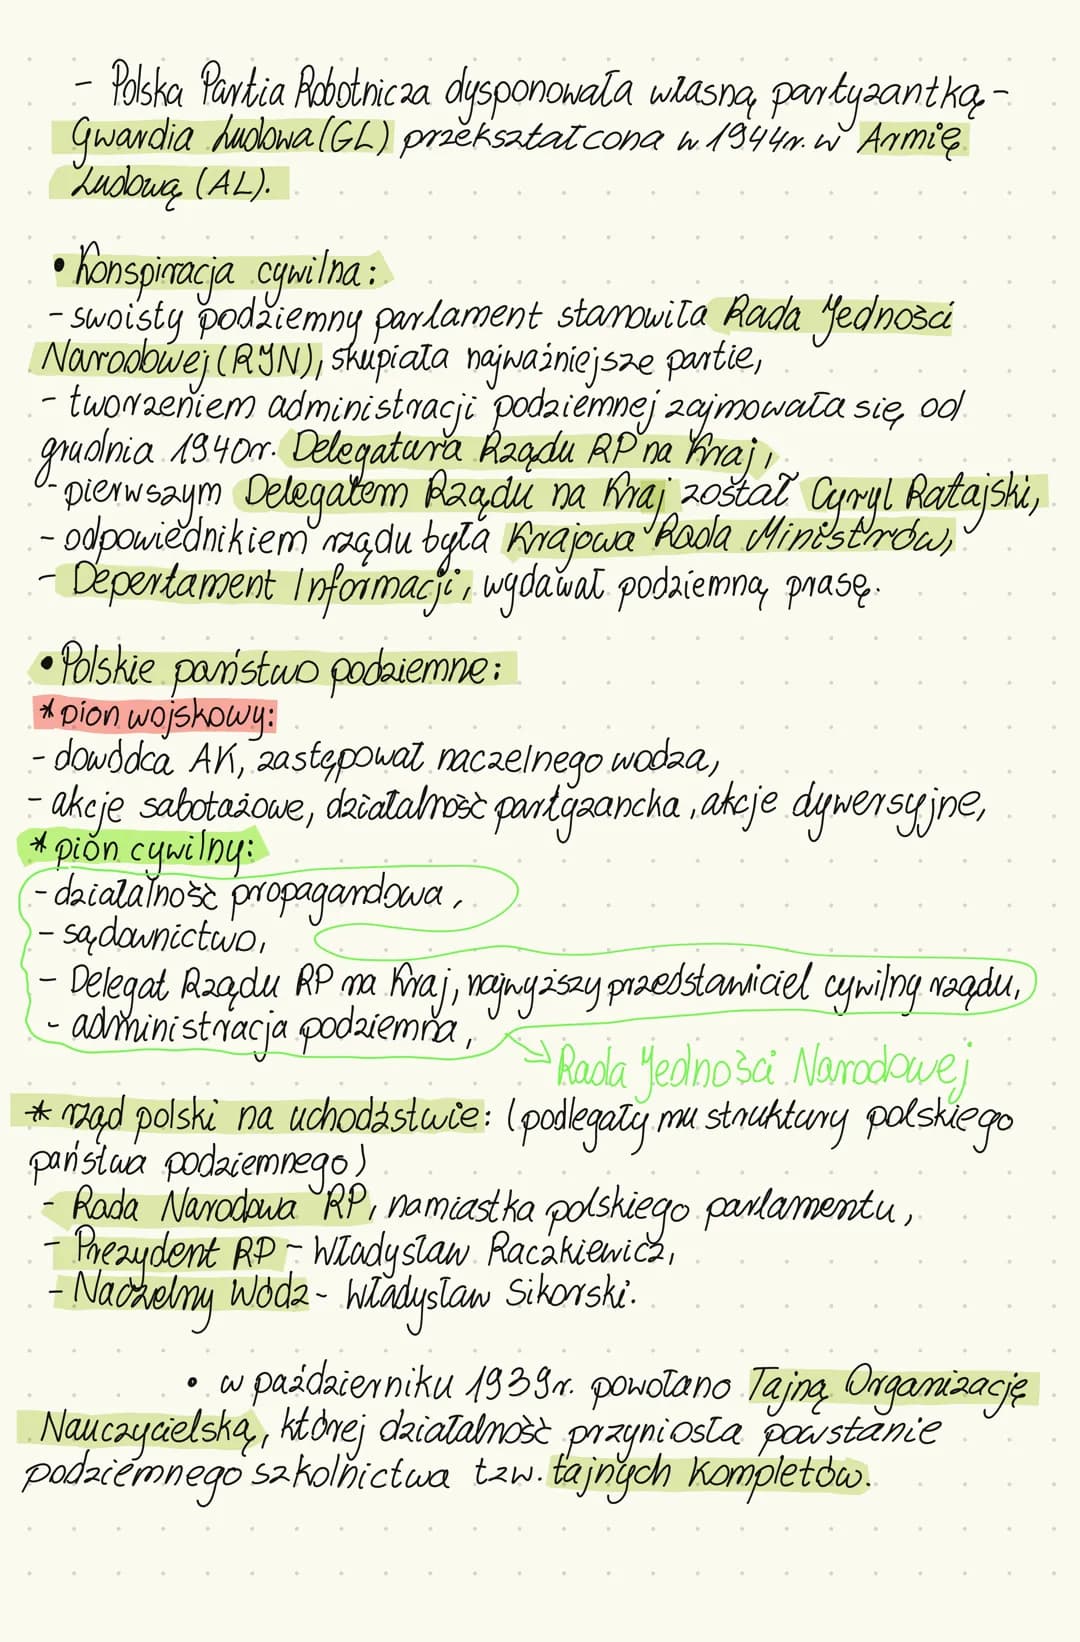 - Polska Partia Robotnicza dysponowała własną partyzantką -
Gwardia Ludowa (GL) przekształcona w 1944r. w Armię
Ludową (AL).
• Konspiracja cywilna:
- swoisty podziemny parlament stanowiła Rada Jedności
Narodowej (RJN), skupiała najważniejsze partie,
- tworzeniem administracji podziemnej zajmowała się od
grudnia 1940r. Delegatura Rządu RP na Kraj,
- pierwszym Delegatem Rządu na Kraj został Cyryl Ratajski,
- odpowiednikiem rządu była Krajowa Rada Ministrów,
- Depertament Informacji, wydawał podziemną prasę.
• Polskie państwo podziemne:
* pion wojskowy:
- dowódca AK, zastępował naczelnego wodza,
- akcje sabotażowe, działalność partyzancka, akcje dywersyjne,
* pion cywilny:
- działalność propagandowa,
- sądownictwo,
- Delegat Rządu RP na Kraj, najwyższy przedstawiciel cywilny rządu,
- administracja podziemna,
Rada Jedności Narodowej
* rząd polski na uchodźstwie: (podlegały mu struktury polskiego
państwa podziemnego)
- Rada Narodowa RP, namiastka polskiego parlamentu,
- Prezydent RP - Władysław Raczkiewicz,
- Naczelny Wódz - Władysław Sikorski.
• w październiku 1939r. powołano Tajną Organizację
Nauczycielską, której działalność przyniosła powstanie
podziemnego szkolnictwa tzw. tajnych kompletów.